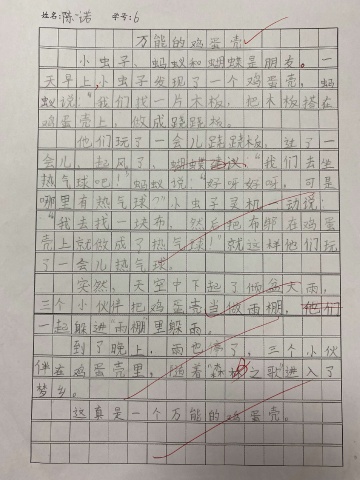 姓名:陈诺 学号:6
万能的鸡蛋壳
小虫子、蚂蚁和蝴蝶是朋友。一
天早上,小虫子发现了一个鸡蛋壳,蚂
蚁说:“我们找一片木板,把木板搭在
鸡蛋壳上,做成跷跷板。
他们玩了一会儿跷跷板,过了一
会儿,起风了、蝴蝶建议:“我们去坐
热气球吧!”蚂蚁说:“好呀好呀,可是
哪里有热气球?”小虫子灵机一动说:
“我去找一块布,然后把布绑在鸡蛋
壳上就做成了热气球!”就这样他们玩
了一会儿热气球。
突然,天空中下起了倾盆大雨,
三个小伙伴把鸡蛋壳当做雨棚,他们
一起躲进“雨棚”里躲雨。
到了晚上,雨也停了,三个小伙
伴在鸡蛋壳里,随着“森林之歌”进入了
梦乡。
这真是一个万能的鸡蛋壳。